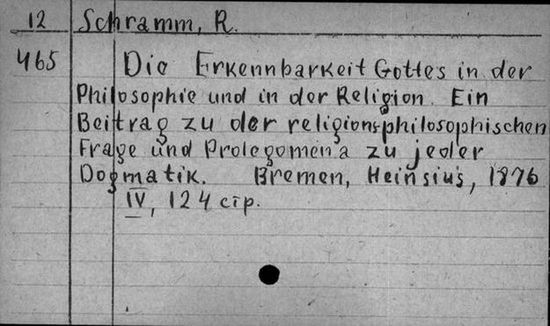 12 Schramm, R.
465 Die Erkennbarkeit Gottes in der
Philosophie und in der Religion. Ein
Beitrag zu der religionsphilosophischen
Frage und Prolegomena zu jeder
Dogmatik. Bremen, Heinsius, 1876
IV, 124 стр.